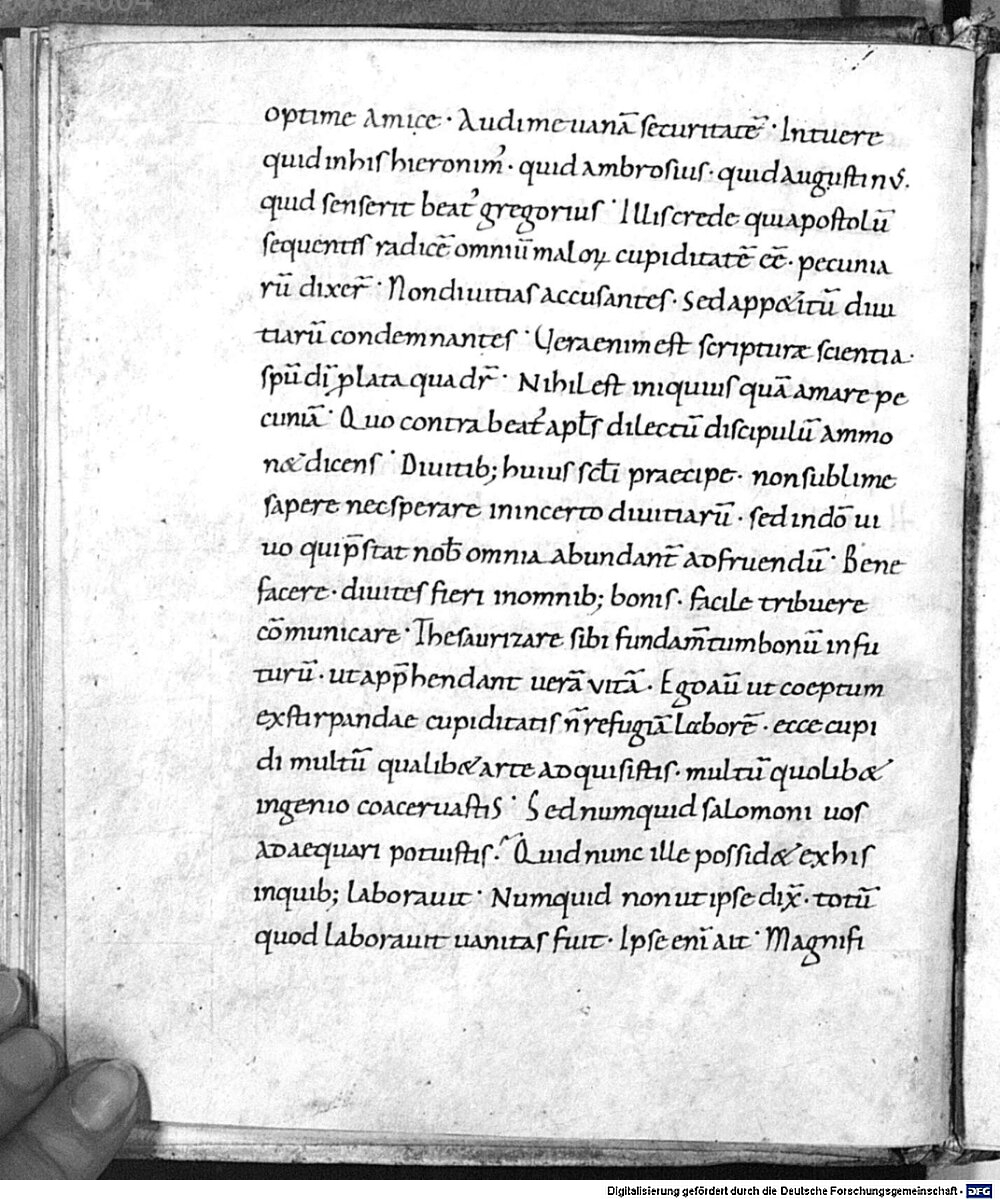 optime amice · Audi me uanā securitatē · Intuere
quid in his hieronim᾿ · quid ambrosius · quid augustinus ·
quid senserit beat᾿ gregorius · Illis crede qui apostolū
sequentis radicē omniū maloꝝ cupiditatē eē · pecunia
rū dixer̄ · Non diuitias accusantes · Sed app&itū diui
tiarū condemnantes · Uera enim est scripturæ scientia ·
sp̄u dī plata qua dr̄ · Nihil est iniquius quā amare pe
cuniā · Quo contra beat᾿ apłs dilectū discipulū ammo
n& dicens · Diuitib; huius scłi praecipe · non sublime
sapere nec sperare in incerto diuitiarū · sed in dō ui
uo qui p̄stat nob̄ omnia abundant̄ ad fruendū · Bene
facere · diuites fieri in omnib; bonis · facile tribuere
cōmunicare · Thesaurizare sibi fundam̄tum bonū in fu
turū · ut app̄hendant uerā vitā · Ego aū ut coeptum
exstirpandae cupiditatis n̄ refugiā laborē · ecce cupi
di multū qualib& arte adquisistis · multū quolib&
ingenio coaceruastis · Sed numquid salomoni uos
adaequari potuistis · Quid nunc ille possid& ex his
in quib; laborauit · Numquid non ut ipse dix̄ · totū
quod laborauit uanitas fuit · Ipse enī ait · Magnifi
Digitalisierung gefördert durch die Deutsche Forschungsgemeinschaft - DFG